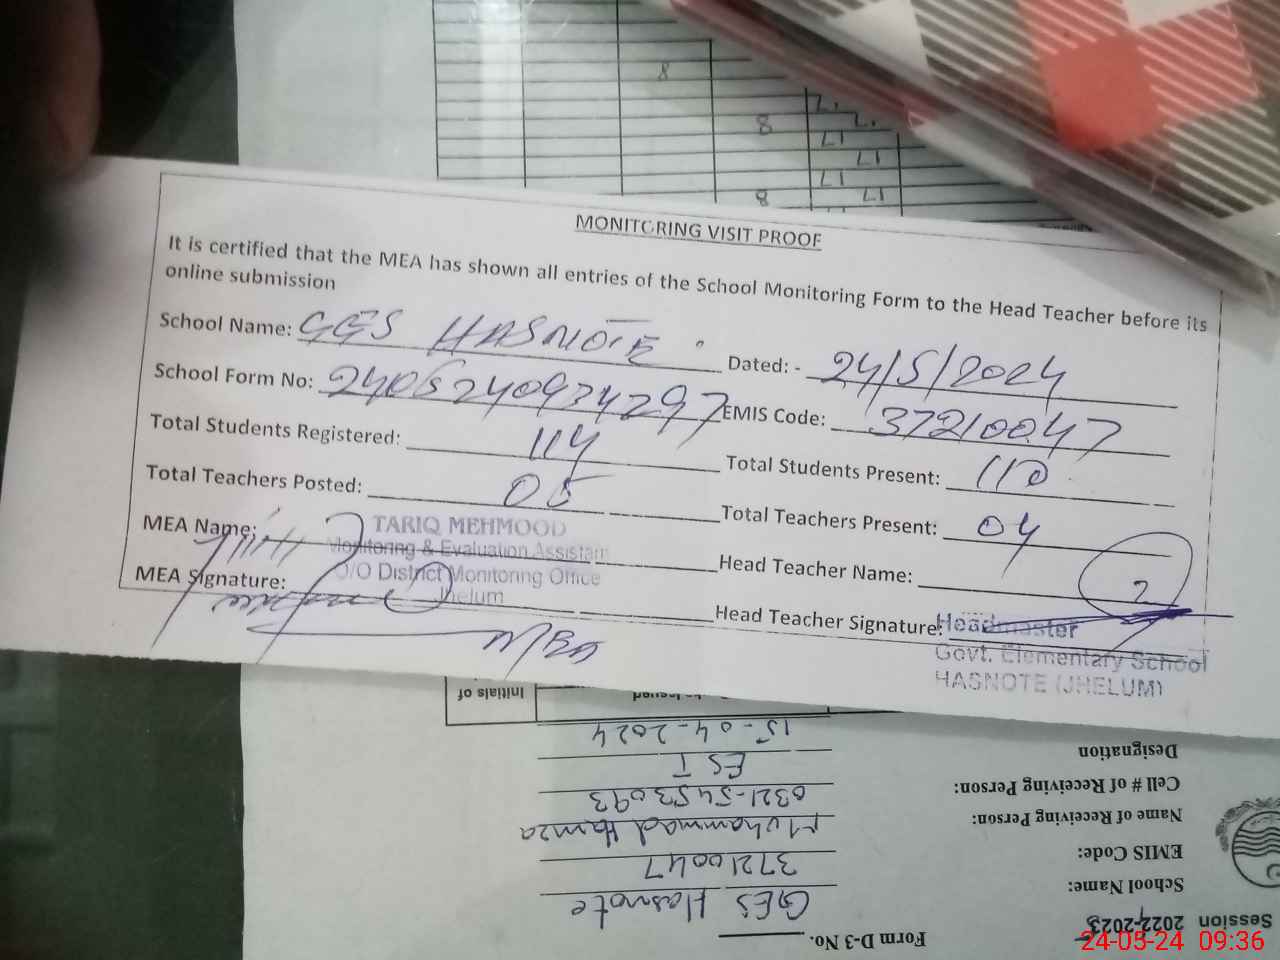 8
8
17
17
17
17
17
8
MONITORING VISIT PROOF
It is certified that the MEA has shown all entries of the School Monitoring Form to the Head Teacher before its
online submission
School Name: GES HASNOTE Dated: - 24/5/2024
School Form No: EMIS Code: 37210047
Total Students Registered: 114 Total Students Present: 110
Total Teachers Posted: 05 Total Teachers Present: 04
MEA Name: Head Teacher Name:
TARIQ MEHMOOD
Monitoring & Evaluation Assistant
O/O District Monitoring Office
Jhelum
MEA Signature: Head Teacher Signature:
Headmaster
Govt. Elementary School
HASNOTE (JHELUM)
Initials of
to Issued
Form D-3 No.
Session 2022-2023
School Name: GES Hasnote
EMIS Code: 37210047
Name of Receiving Person: Muhammad Hamza
Cell # of Receiving Person: 0321-5453093
Designation EST
15-04-2024
24-05-24 09:36